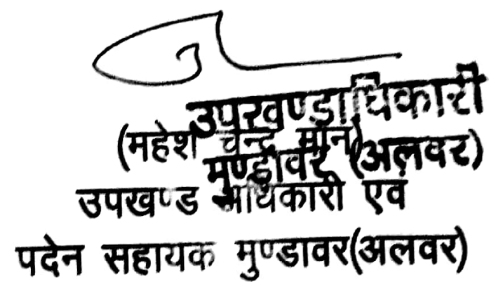 उपखण्डाधिकारी
(महेश चन्द्र मान)
मुण्डावर (अलवर)
उपखण्ड अधिकारी एवं
पदेन सहायक मुण्डावर(अलवर)